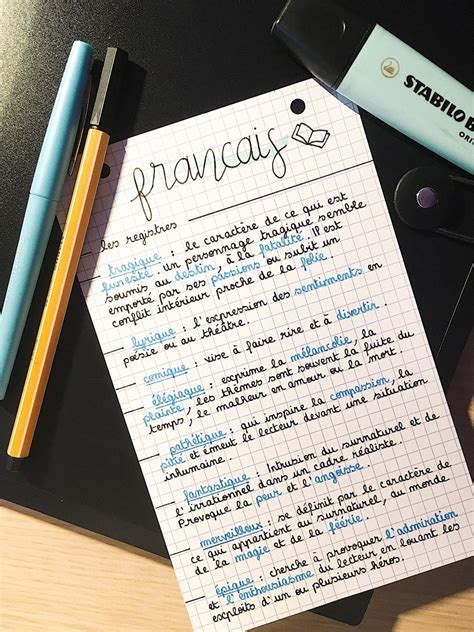 STABILO B
ORI
francais
Les registres
tragique : le caractère de ce qui est
funeste. un personnage tragique semble
soumis au destin, à la fatalité. Il est
emporté par ses passions ou subit un
conflit intérieur proche de la folie.
lyrique : l'expression des sentiments en
poésie ou au théâtre.
comique : vise à faire rire et à divertir.
élégiaque : exprime la mélancolie, la
plainte, les thèmes sont souvent la fuite du
temps, le malheur en amour ou la mort.
pathétique : qui inspire la compassion, la
pitié et émeut le lecteur devant une situation
inhumaine.
fantastique : Intrusion du surnaturel et de
l'irrationnel dans un cadre réaliste.
Provoque la peur et l'angoisse.
merveilleux : se définit par le caractère de
ce qui appartient au surnaturel, au monde
de la magie et de la féérie.
épique : cherche à provoquer l'admiration
et l'enthousiasme du lecteur en louant les
exploits d'un ou plusieurs héros.